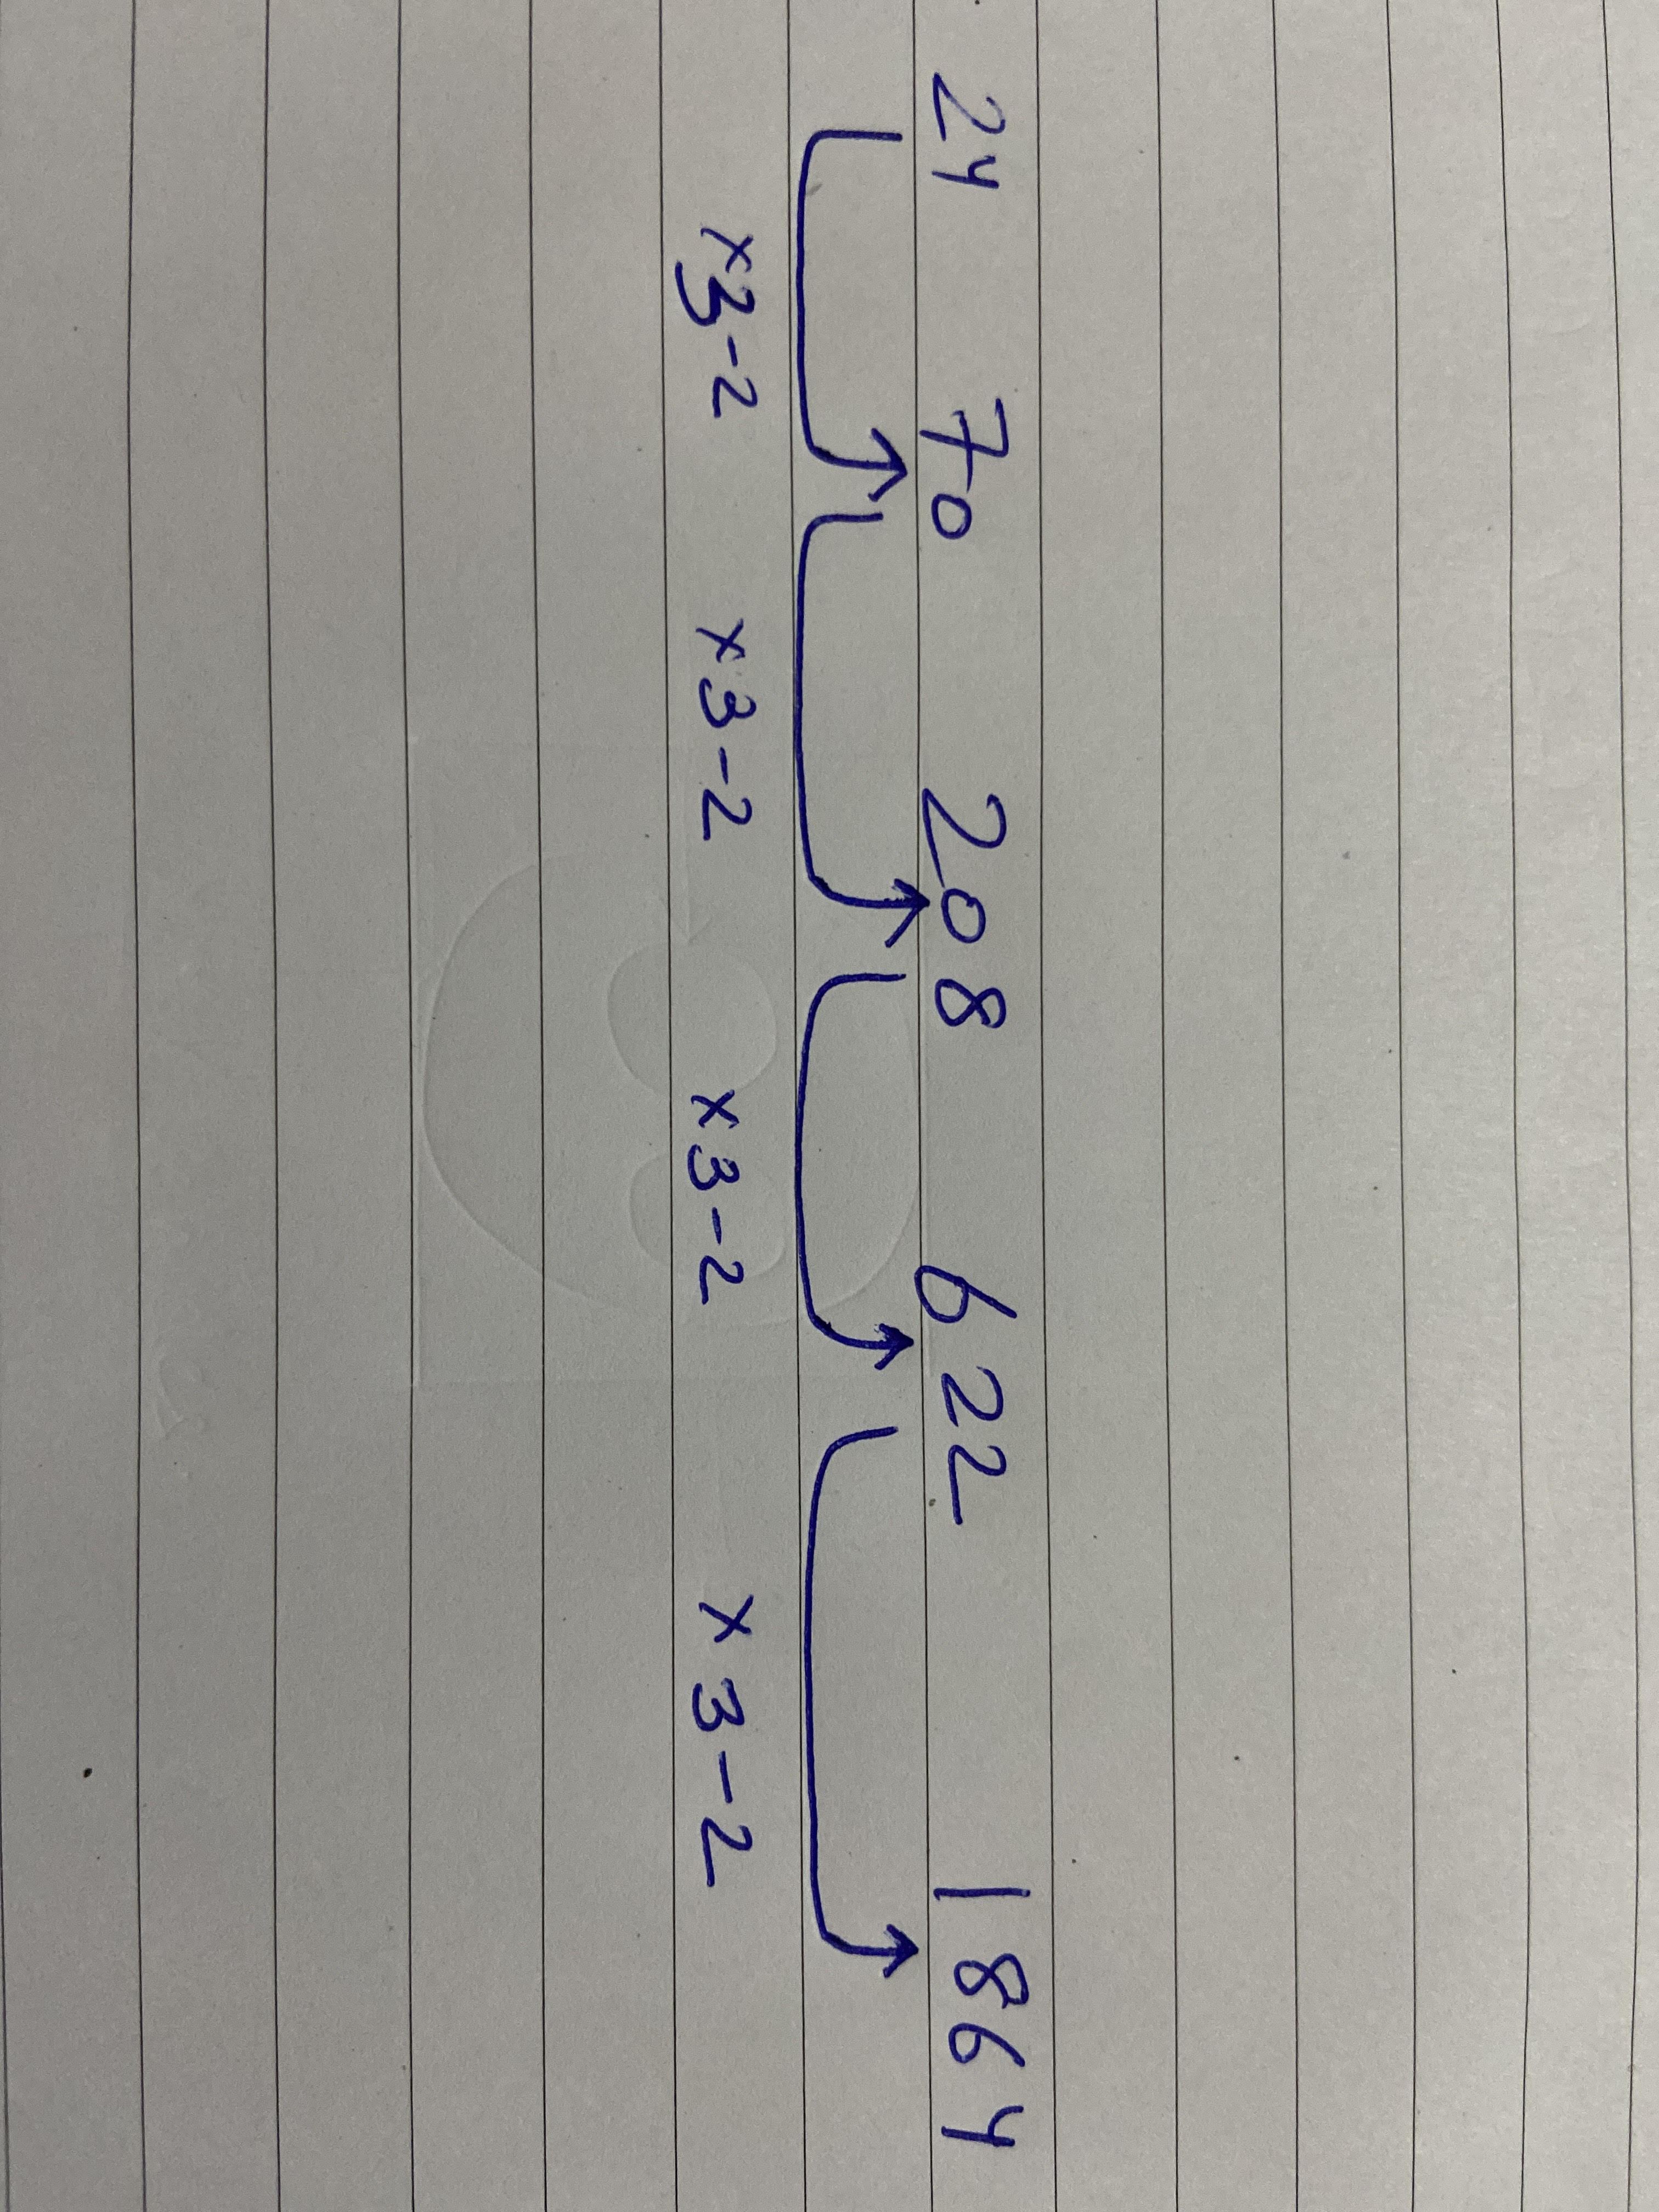 24 70 208 622 1864
x3-2 x3-2 x3-2 x3-2